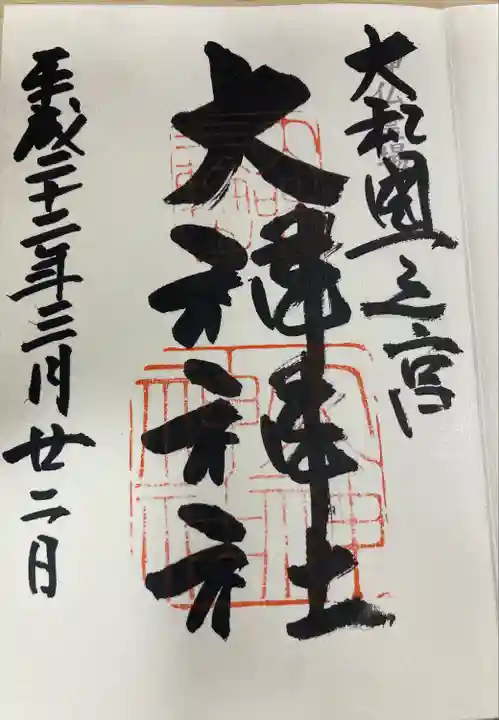 大和國一之宮
大神神社
平成二十二年三月廿二日